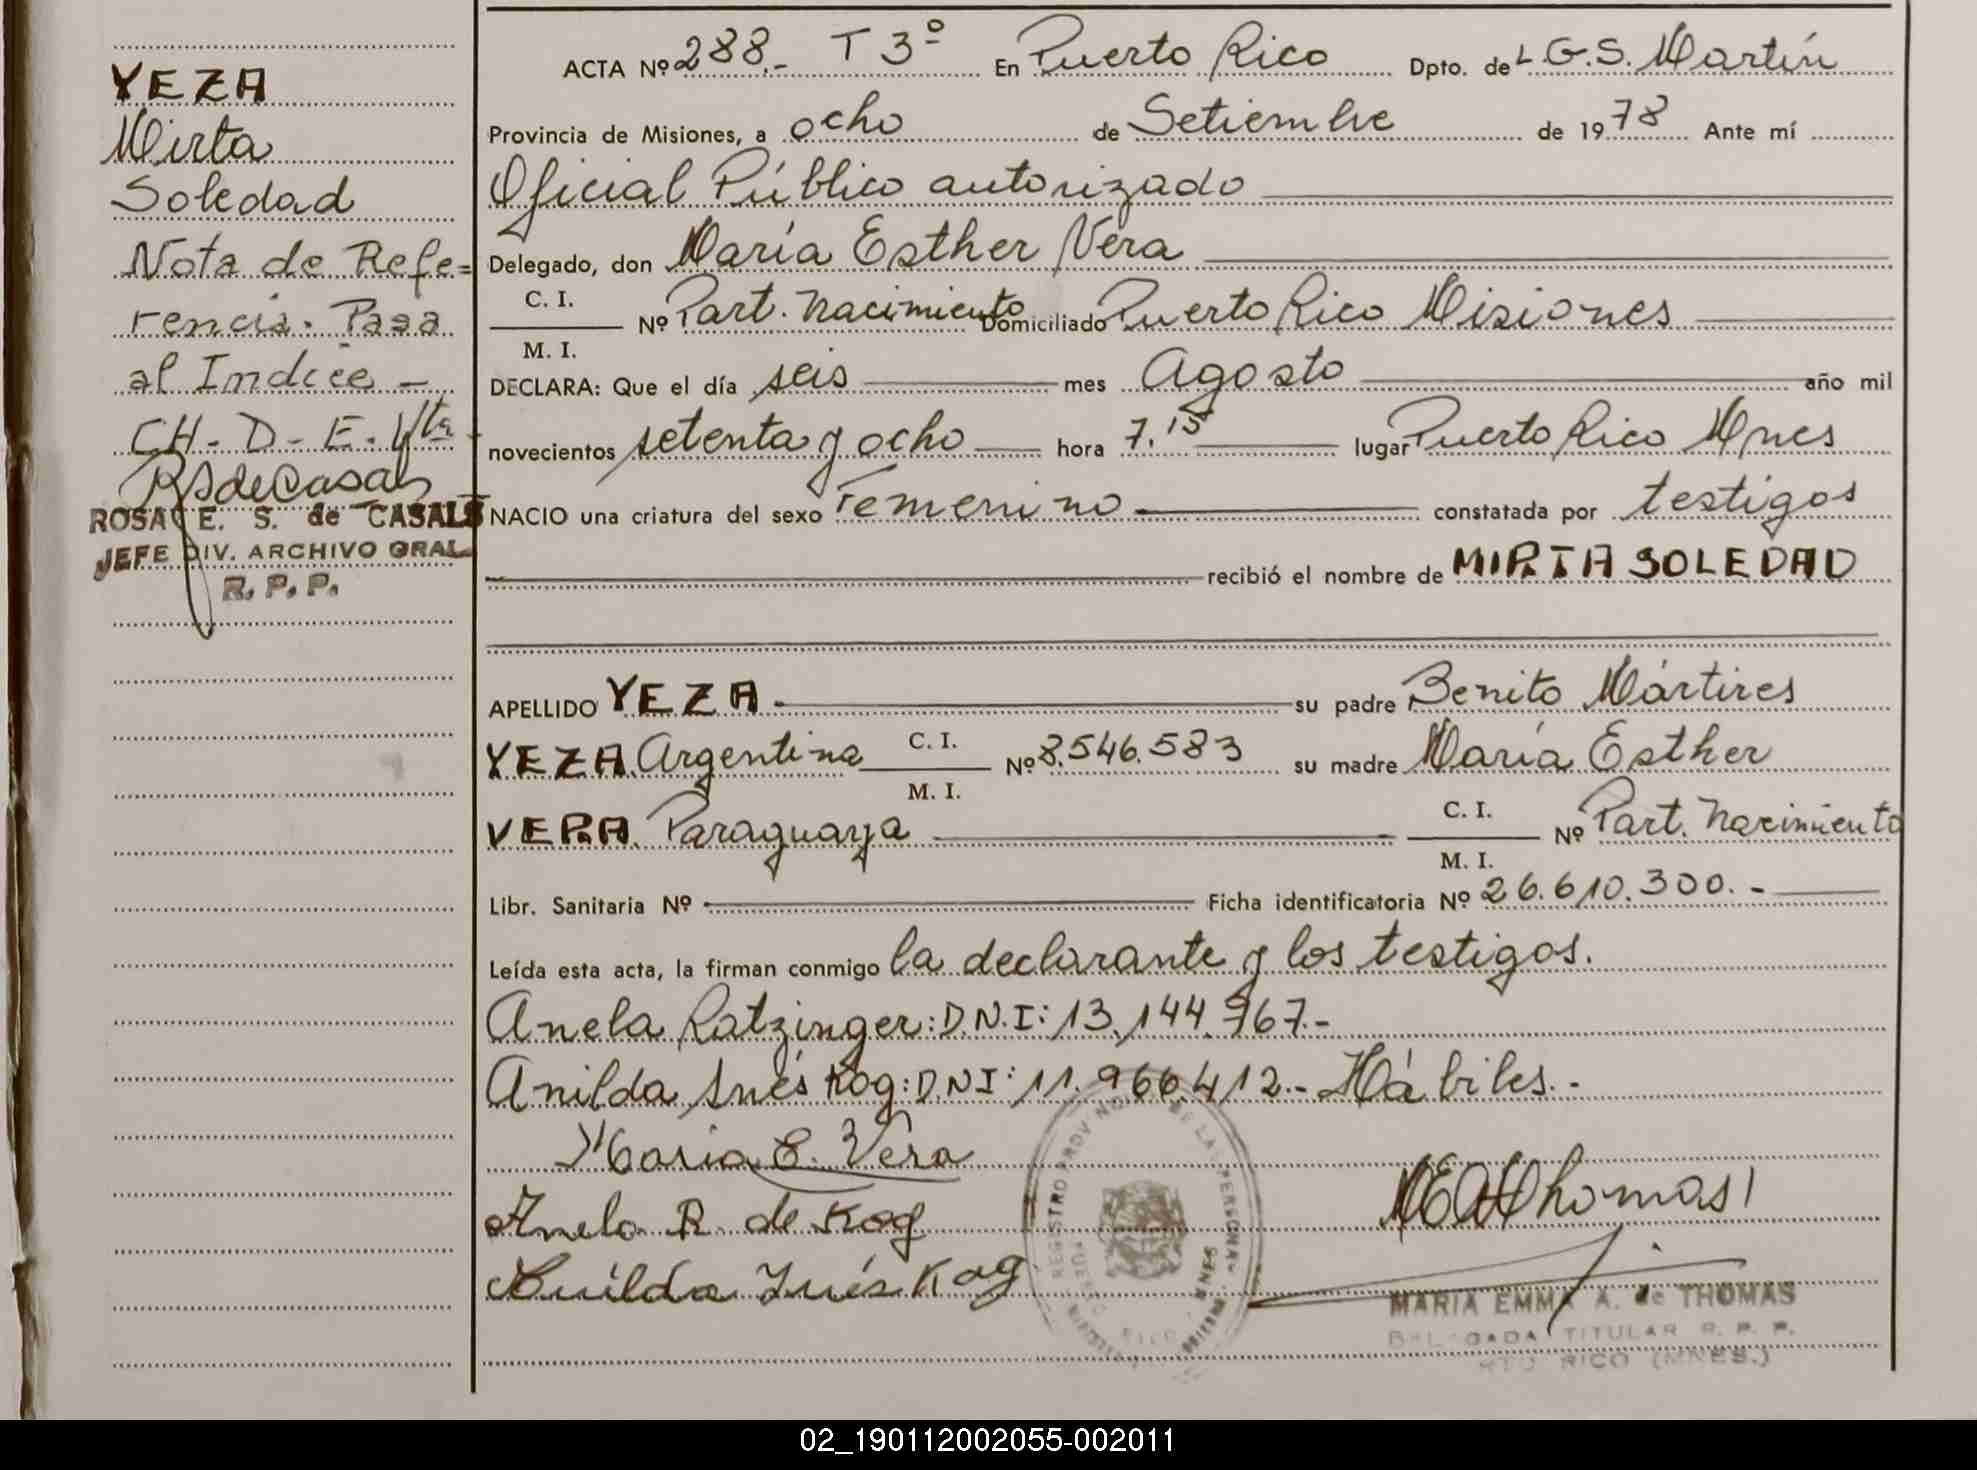 YEZA
Mirta
Soledad
Nota de Refe=
rencia. Pasa
al Indice -
CH. D. E. Vta.
RSdeCasals
ROSA E. S. de CASALS
JEFE DIV. ARCHIVO GRAL
R. P. P.
ACTA Nº 288.- T 3º En Puerto Rico Dpto. de L G.S. Martín
Provincia de Misiones, a ocho de Setiembre de 1978 Ante mí
Oficial Público autorizado
Delegado, don María Esther Vera
C. I.
Nº Part. Nacimiento Domiciliado Puerto Rico Misiones
M. I.
DECLARA: Que el día seis mes Agosto año mil
novecientos setenta y ocho hora 7.15 lugar Puerto Rico Mnes
NACIO una criatura del sexo Femenino constatada por testigos
recibió el nombre de MIRTA SOLEDAD
APELLIDO YEZA su padre Benito Mártires
YEZA Argentina C. I. Nº 8.546.583 su madre María Esther
M. I.
VERA. Paraguaya C. I. Nº Part. Nacimiento
M. I.
Libr. Sanitaria Nº Ficha identificatoria Nº 26.610.300.-
Leída esta acta, la firman conmigo la declarante y los testigos.
Anela Ratzinger: D.N.I: 13.144.967.-
Anilda Inés Kog: D.N.I: 11.966.412.- Hábiles.-
Maria E. Vera
Anela R. de Kog
Anilda Inés Kog
REGISTRO PROVINCIAL DE LAS PERSONAS
PUERTO RICO
MNES
MEAThomas
MARIA EMMA A. de THOMAS
DELEGADA TITULAR R. P. P.
PTO RICO (MNES.)
02_190112002055-002011